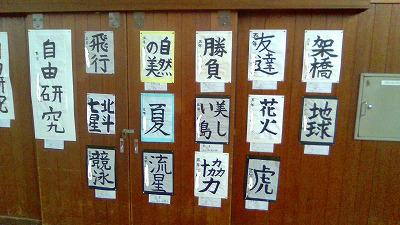 自由研究
飛行
自然
の美
勝負
友達
架橋
北斗
七星
夏
美し
い島
花火
地球
競泳
流星
協力
虎